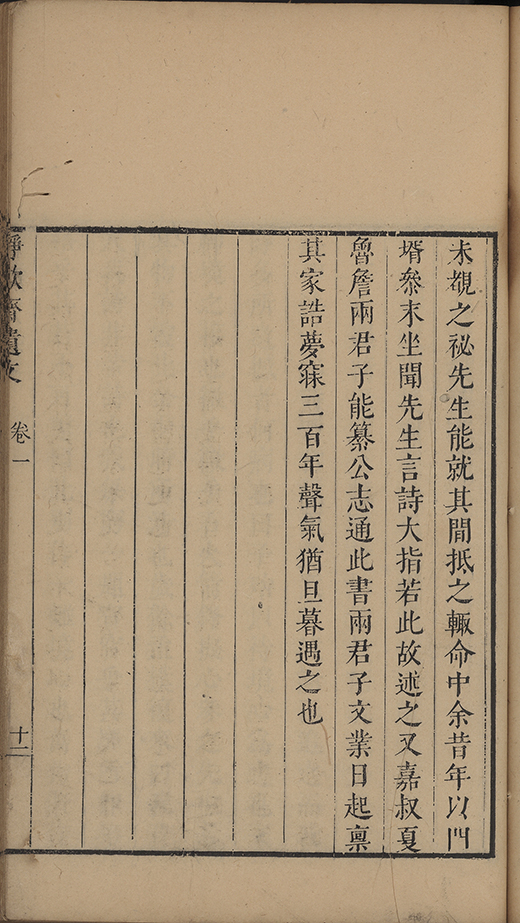 未覩之祕先生能就其間抵之輙命中余昔年以門
壻叅末坐聞先生言詩大指若此故述之又嘉叔夏
魯詹兩君子能纂公志通此書兩君子文業日起稟
其家誥夢寐三百年聲氣猶旦暮遇之也
齋遺文
卷一
十二